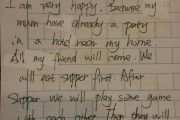 I am very happy, because my
mum have already a party
in a hotel near my home
All my friend will come. We
will eat supper first. After
Supper we will play some game
with each other Then they will